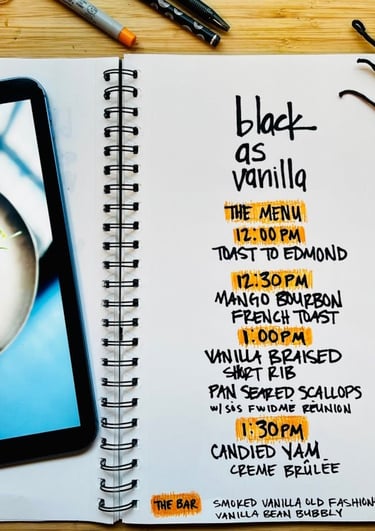 black
as
vanilla
THE MENU
12:00 PM
TOAST TO EDMOND
12:30PM
MANGO BOURBON
FRENCH TOAST
1:00PM
VANILLA BRAISED
SHORT RIB
PAN SEARED SCALLOPS
W/ REUNION
1:30PM
CANDIED YAM
CREME BRÛLÉE
THE BAR
SMOKED VANILLA OLD FASHION
VANILLA BEAN BUBBLY